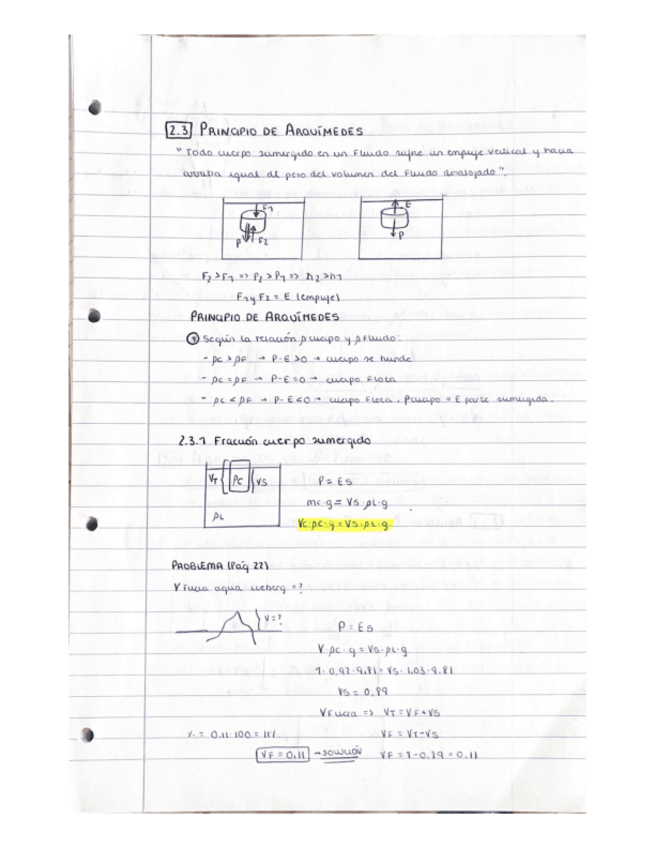 2.3 PRINCIPIO DE ARQUÍMEDES
"Todo cuerpo sumergido en un fluido sufre un empuje vertical y hacia
arriba igual al peso del volumen del fluido desalojado".
F1 E
P F2 P
F2 > F1 => P2 > P1 => h2 > h1
F1 y F2 = E (empuje)
PRINCIPIO DE ARQUÍMEDES
① Según la relación ρ cuerpo y ρ fluido:
- ρc > ρF → P-E>0 → cuerpo se hunde
- ρc = ρF → P-E=0 → cuerpo flota
- ρc < ρF → P-E<0 → cuerpo flota. Pcuerpo = E parte sumergida.
2.3.1 Fracción cuerpo sumergido
VT ρc VS P = ES
mc·g = VS·ρL·g
ρL Vc·ρc·g = VS·ρL·g
PROBLEMA (Pág 22)
V fuera agua iceberg = ?
V=? P = ES
V·ρc·g = VS·ρL·g
1·0,92·9,81 = VS·1,03·9,81
VS = 0,89
VFuera => VT = VF+VS
%. = 0,11·100 = 11% VF = VT-VS
VF = 0,11 → SOLUCIÓN VF = 1-0,89 = 0,11